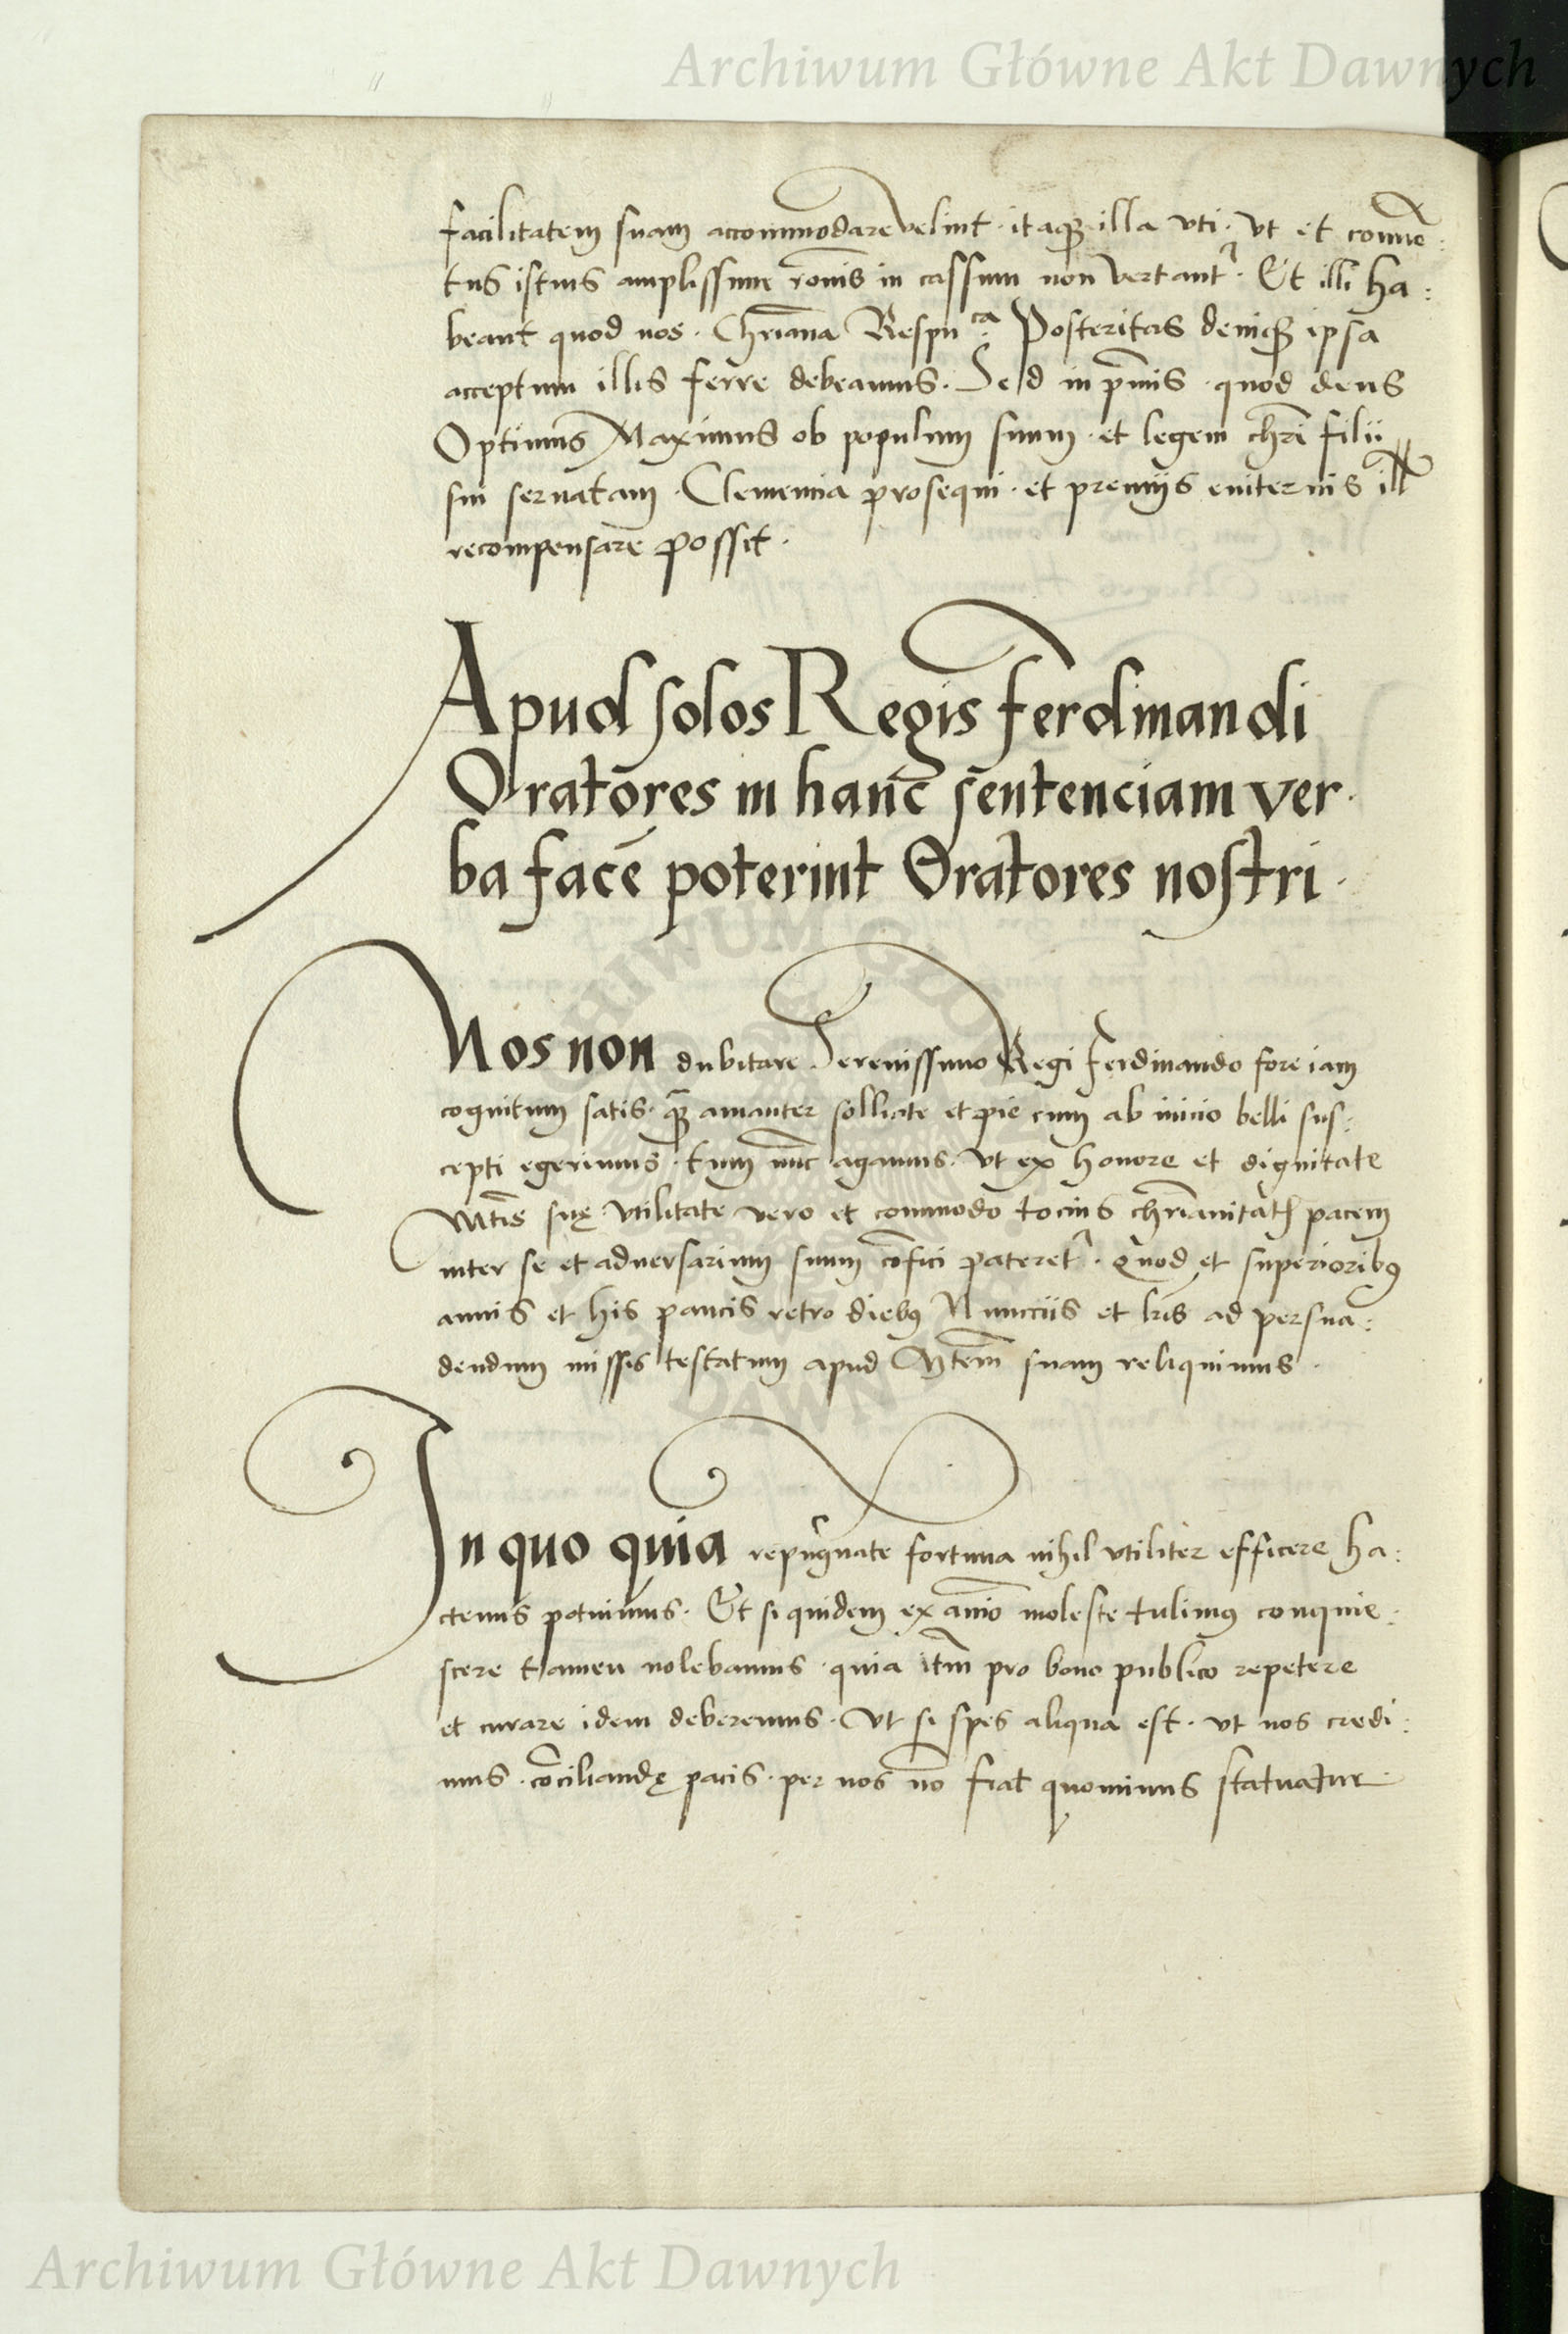 Archiwum Główne Akt Dawnych
facilitatem suam accommodare velint · itaq̃ illa vti · Vt et conue᷑:
tus istius amplissime r̃onis in cassum non vertant᷑ · Et illi ha:
beant quod nos · Chr̃iana Respu᷑ca Posteritas deniq̃ ipsa
acceptum illis ferre debeamus. Sed in p̃mis · quod deus
Optimus Maximus ob populum suum · et legem chr̃i filii
sui seruatam · Clementia prosequi · et premiis euiternis ill̃
recompensare possit ·
Apud solos Regis ferdinandi
Oratores in hanc sentenciam ver·
ba facẽ poterint Oratores nostri ·
Nos non dubitare Serenissimo Regi Ferdinando fore iam
cognitum satis · q̃ amanter sollicite et pie cum ab inicio belli sus:
cepti egerimus · tum nũc agamus · Vt ex honore et dignitate
Mt̃is suę vtilitate vero et commodo tocius chr̃ianitat̃ pacem
inter se et aduersarium suum cõfici pateret᷑ · Quod et superioribꝰ
annis et his paucis retro diebꝰ Nunccijs et l̃ris ad persua:
dendum missis testatum apud Mt̃em suam reliquimus ·
In quo quia repugnãte fortuna nihil vtiliter efficere ha:
ctenus potuimus · Et si quidem ex aĩo moleste tulimꝰ conquie:
scere tamen nolebamus · quia it̃m pro bono publico repetere
et curare idem deberemus · Vt si spes aliqua est · vt nos credi:
mus · cõciliandę pacis · per nos nõ fiat quominus statuatur
Archiwum Główne Akt Dawnych